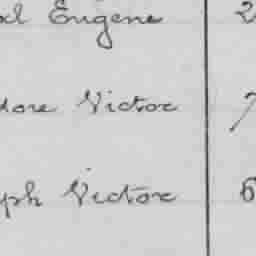 Eugene 2
dore Victor 7
ph Victor 6